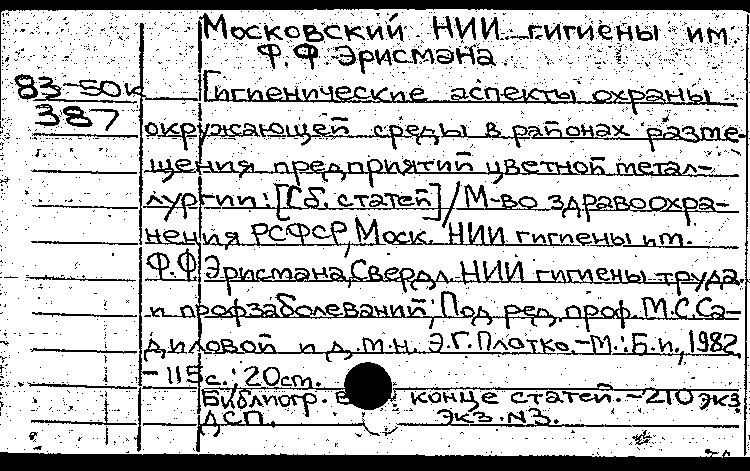 Московский НИИ гигиены им.
Ф.Ф Эрисмана
83-50к
Гигиенические аспекты охраны
387
окружающей среды в районах разме-
щения предприятий цветной метал-
лургии: [Сб. статей]/М-во здравоохра-
нения РСФСР, Моск. НИИ гигиены им.
Ф.Ф Эрисмана, Свердл. НИИ гигиены труда
и профзаболеваний; Под ред. проф. М.С.Са-
диловой и д.м.н. Э.Г.Плотко.-М.:Б.и., 1982
-115с.; 20см.
Библиогр. в конце статей. -210 экз.
ДСП. экз. N3.